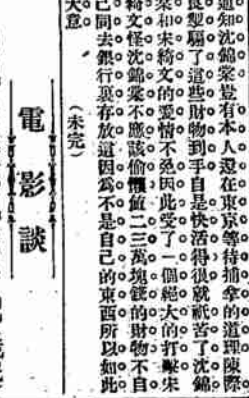 道知沈錦棠豈有本人還在東京等待捕拿的道理陳際
良型騙了這些財物到手自是快活得很就祇苦了沈錦
棠和宋綺文的愛情不免因此受了一個絕大的打擊宋
綺文怪沈錦棠不應該偷值二三萬塊錢的財物不自
己間去銀行裏存放這因爲不是自己的東西所以如此
大意。
（未完）
電影談